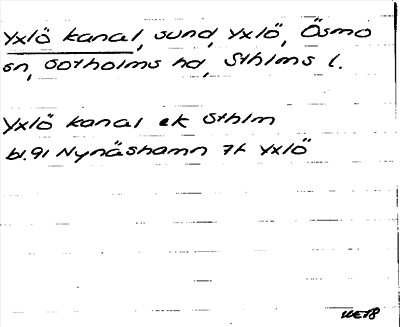 Yxlö kanal, sund, Yxlö, Ösmo
sn, Sotholms hd, Sthlms l.
Yxlö kanal ek Sthlm
bl. 91 Nynäshamn 7f Yxlö